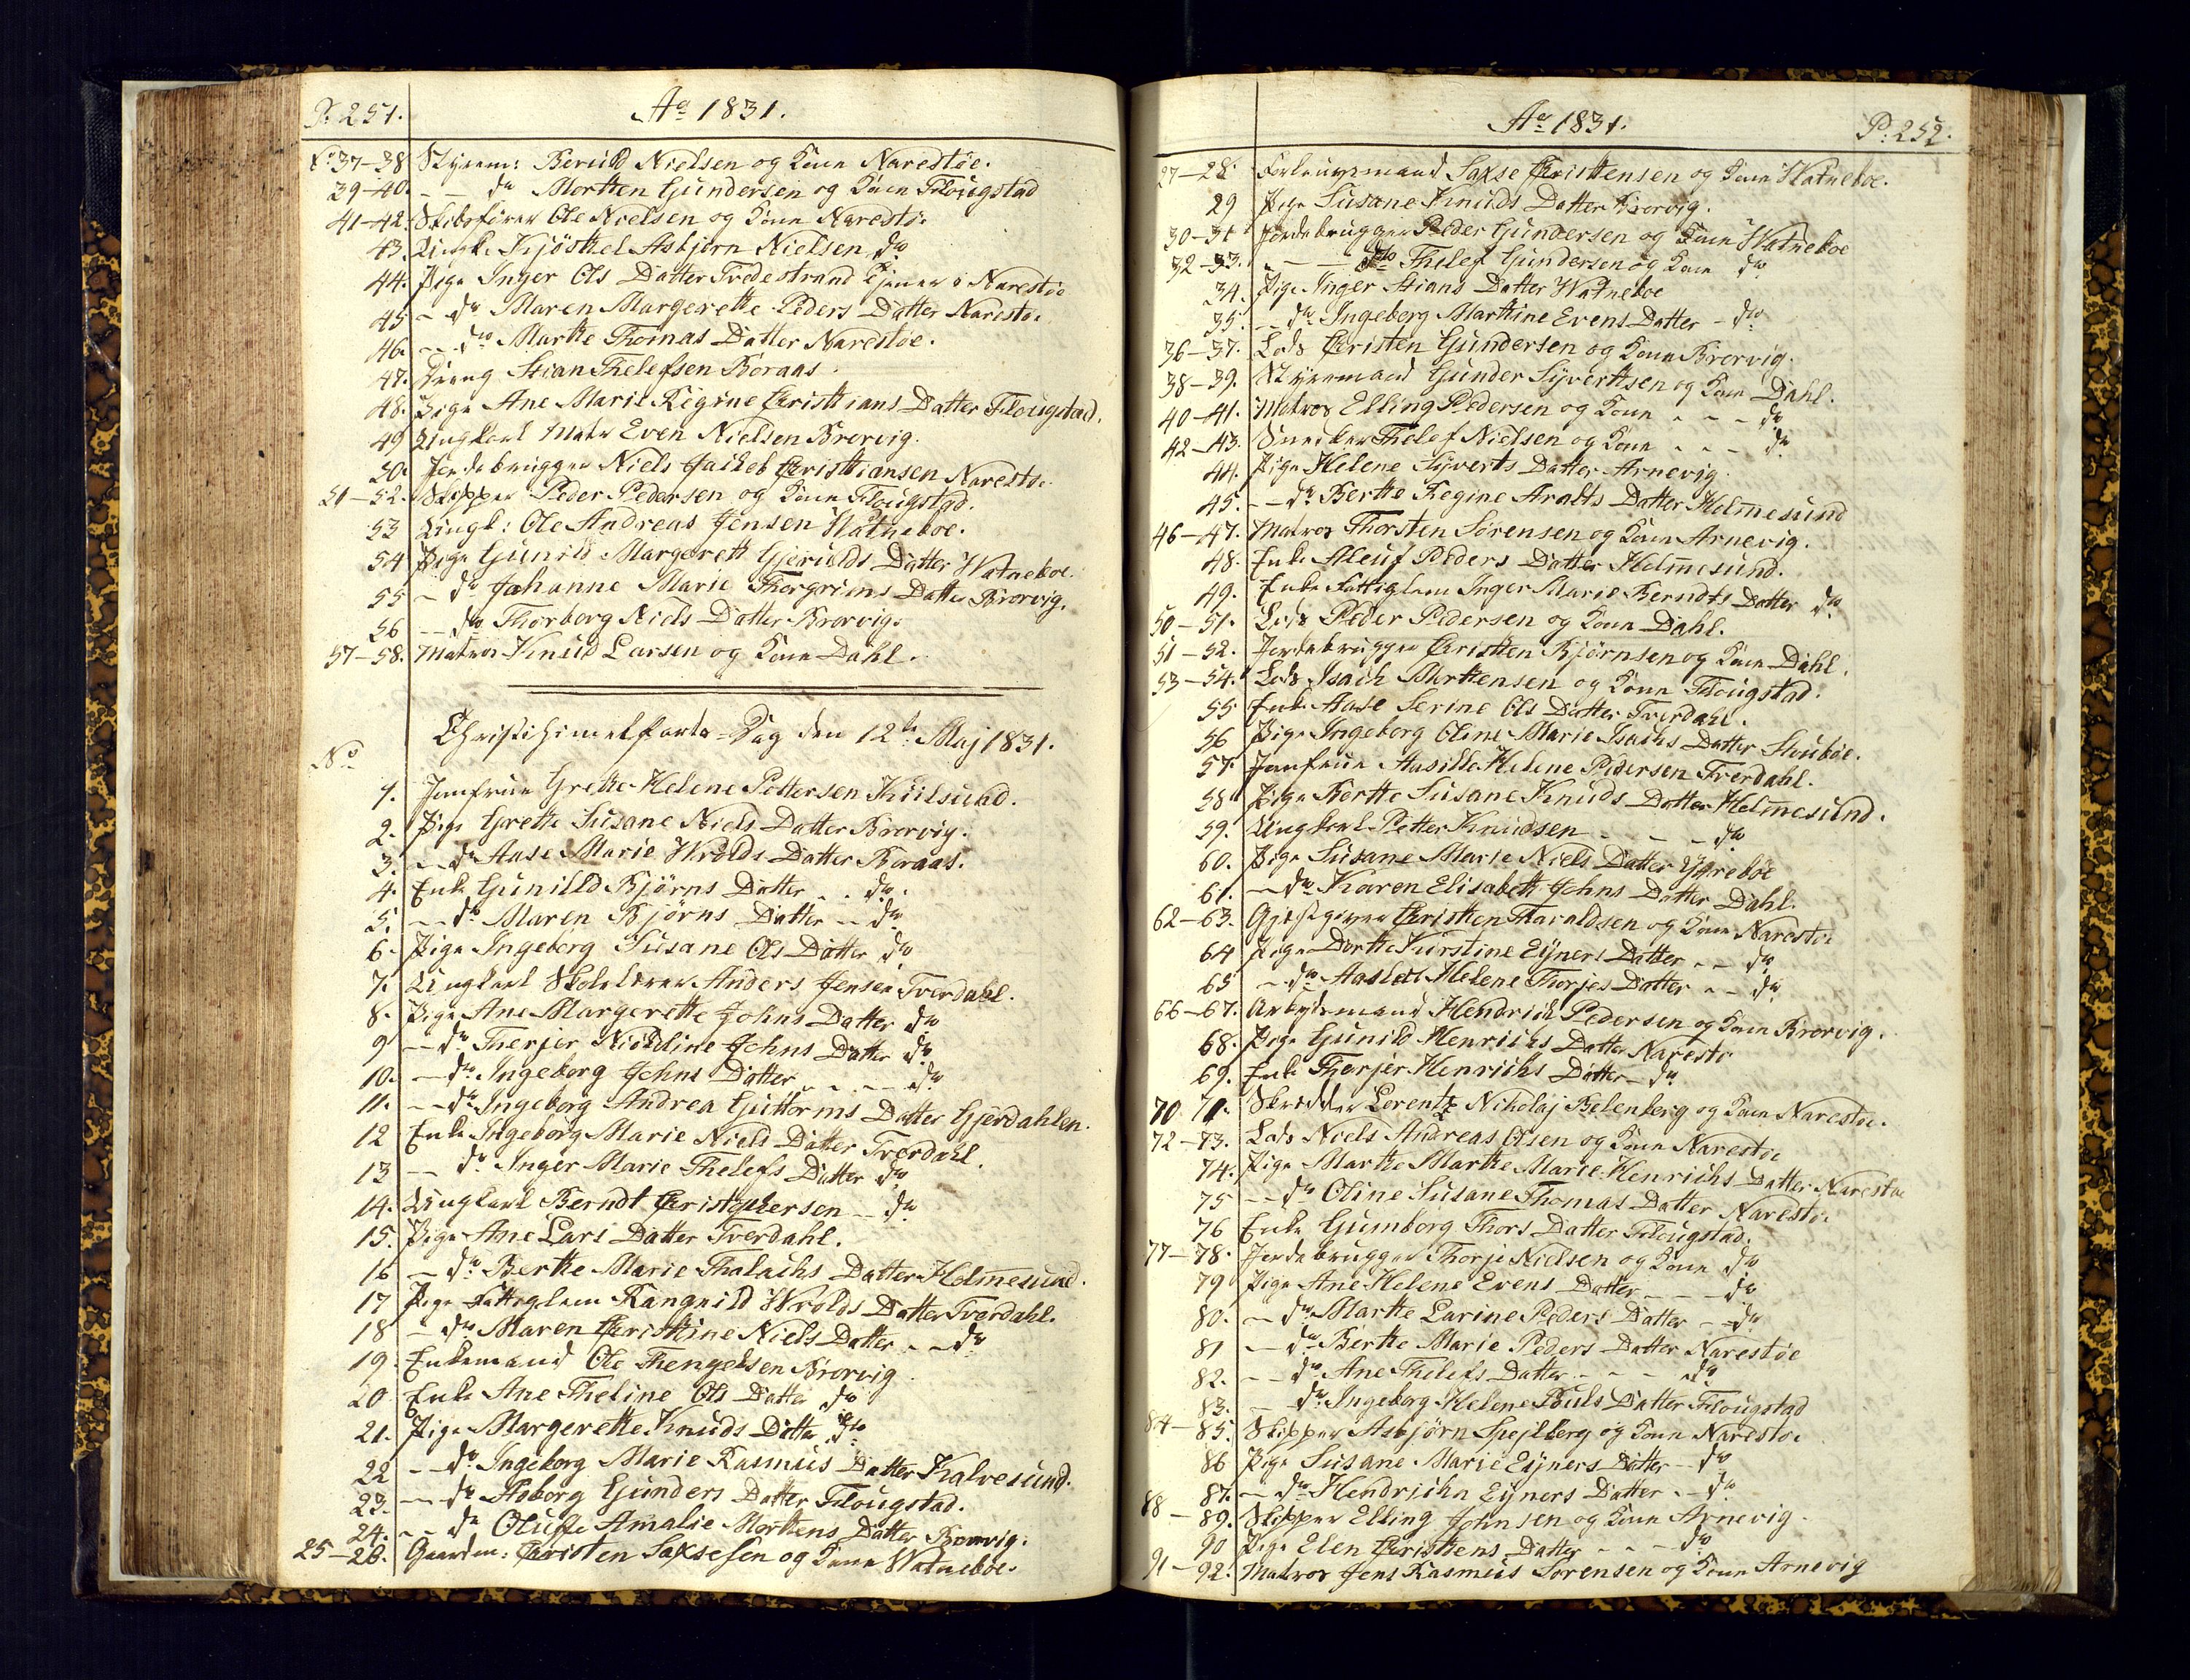 P. 251. Ao 1831.
No 37-38 Styrem: Beruld Nielsen og Kone Narestøe.
39-40. - - do Mortten Gundersen og Kone Flougstad
41-42 Skibsfører Ole Nielsen og Kone Narestøe
43. Ungk. Kjöstkel Asbjørn Nielsen do
44. Pige Inger Ols Datter Tvedestrand tjener i Narestøe
45 - do Maren Margerette Peders Datter Narestøe
46. - do Marthe Thomas Datter Narestøe.
47. Dreng Stian Thelefsen Boraas.
48. Pige Ane Marie Regine Christians Datter Flougstad.
49 Ungkarl Matr Even Nielsen Brorvig.
50. Jordebrugger Niels Jackob Christiansen Narestøe
51-52. Skipper Peder Pedersen og Kone Flougstad.
53 Ungk: Ole Andreas Jensen Watneboe.
54 Pige Gunild Margerett Gjerulds Datter Watneboe.
55 - do Johanne Marie Thorgrims Datter Brorvig.
56 - - do Thorborg Niels Datter Brorvig.
57-58. Matros Knud Larsen og Kone Dahl.
Christi himelfarts-Dag den 12te Maj 1831.
No
1. Jomfrue Grethe Helene Pettersen Kiilsund.
2. Pige Grethe Susane Niels Datter Brorvig.
3. - - do Aase Marie Wrolds Datter Boraas.
4. Enke Gunilld Bjørns Datter - - do.
5. - - do Maren Bjørns Datter - - do
6. Pige Ingeborg Susane Ols Datter do
7. Ungkarl Skolelærer Anders Jensen Tverdahl.
8. Pige Ane Margerette Johns Datter do
9 - - do Therjer Nicoline Johns Datter do
10. - do Ingeborg Johns Datter - - - - do
11. - - do Ingeborg Andrea Guttorms Datter Gjerdahlen.
12 Enke Ingeborg Marie Niels Datter Tverdahl.
13 - do Inger Marie Thelefs Datter do
14. Ungkarl Berndt Christophersen - - do
15. Pige Ane Lars Datter Tverdahl.
16 - do Berthe Marie Thalachs Datter Holmesund.
17 Pige Fattiglem Rangnild Wrolds Datter Tverdahl.
18 - do Maren Christine Niels Datter - - do
19. Enkemand Ole Thengelsen Brorvig.
20 Enke Ane Theline Ols Datter do
21. Pige Margerette Knuds Datter do
22 - - do Ingeborg Marie Rasmus Datter Kalvesund.
23. - - do Asborg Gunders Datter Flougstad.
24. - - do Oluffe Amalie Mortens Datter Brorvig.
25-26. Gaardm: Christen Saxsesen og Kone Watneboe.
Ao 1831. P. 252.
27-28. Forlougsmand Saxse Christensen og Kone Watneboe.
29 Pige Susane Knuds Datter Brorvig.
30-31 Jordebrugger Peder Gundersen og Kone Watneboe
32-33. - - - do Thelef Gundersen og Kone do
34. Pige Inger Stians Datter Watneboe
35. - - do Ingeberg Marthine Evens Datter - do
36-37. Lods Christen Gundersen og Kone Brorvig.
38-39. Styremand Gunder Syvertsen og Kone Dahl.
40-41. Matros Elling Pedersen og Kone - - - do
42-43. Snedker Thelef Nielsen og Kone - - - do
44. Pige Helene Syverts Datter Arnevig
45. - - do Berthe Regine Aralts Datter Holmesund
46-47. Matros Thorsten Sørensen og Kone Arnevig.
48. Enke Aleuf Peders Datter Holmesund.
49. Enke Fattiglem Inger Marie Berndts Datter do
50-51. Lods Peder Pedersen og Kone Dahl.
51-52. Jordebrugger Christen Bjørnsen og Kone Dahl.
53-54. Lods Isach Mortensen og Kone Flougstad.
55 Enke Aase Serine Ols Datter Tverdahl.
56 Pige Ingeborg Oline Marie Isachs Datter Skouböe.
57. Jomfrue Aasille Helene Pedersen Tverdahl.
58 Pige Berthe Susane Knuds Datter Holmesund.
59. Ungkarl Petter Knudsen - - - do
60. Pige Susane Marie Niels Datter Ygreboe
61. - do Karen Elisabeth Johns Datter Dahl.
62-63. Gjestgiver Christen Haraldsen og Kone Narestøe
64 Pige Dorthe Kirstine Eyners Datter - - do
65 - do Aashell Helene Thorjes Datter - - do
66-67. Arbeydsmand Hendrich Pedersen og Kone Brorvig.
68. Pige Gunild Henrichs Datter Narestøe
69. Enke Therjer Henrichs Datter - do
70 71. Skredder Lerentz Nikolaj Belenberg og Kone Narestøe.
72-73. Lods Niels Andreas Olsen og Kone Narestøe
74. Pige Marthe Marthe Marie Henrichs Datter Narestøe
75 - - do Oline Susane Thomas Datter Narestøe
76 Enke Gumborg Thors Datter Flougstad.
77-78. Jordebrugger Thorje Nielsen og Kone do
79 Pige Ane Helene Evens Datter - - - do
80. - do Marthe Larine Peders Datter - - do
81 - do Berthe Marie Peders Datter Narestøe
82. - - do Ane Thelefs Datter - - - do
83. - do Ingeborg Helene Pouls Datter Flougstad
84-85. Skipper Asbjørn Spejlberg og Kone Narestøe
86 Pige Susane Marie Eyners Datter - do
87. - do Hendricha Eyners Datter - - do
88-89. Skipper Elling Johnsen og Kone Arnevig.
90 Pige Elen Christens Datter - - - do
91-92. Matros Jens Rasmus Sørensen og Kone Arnevig